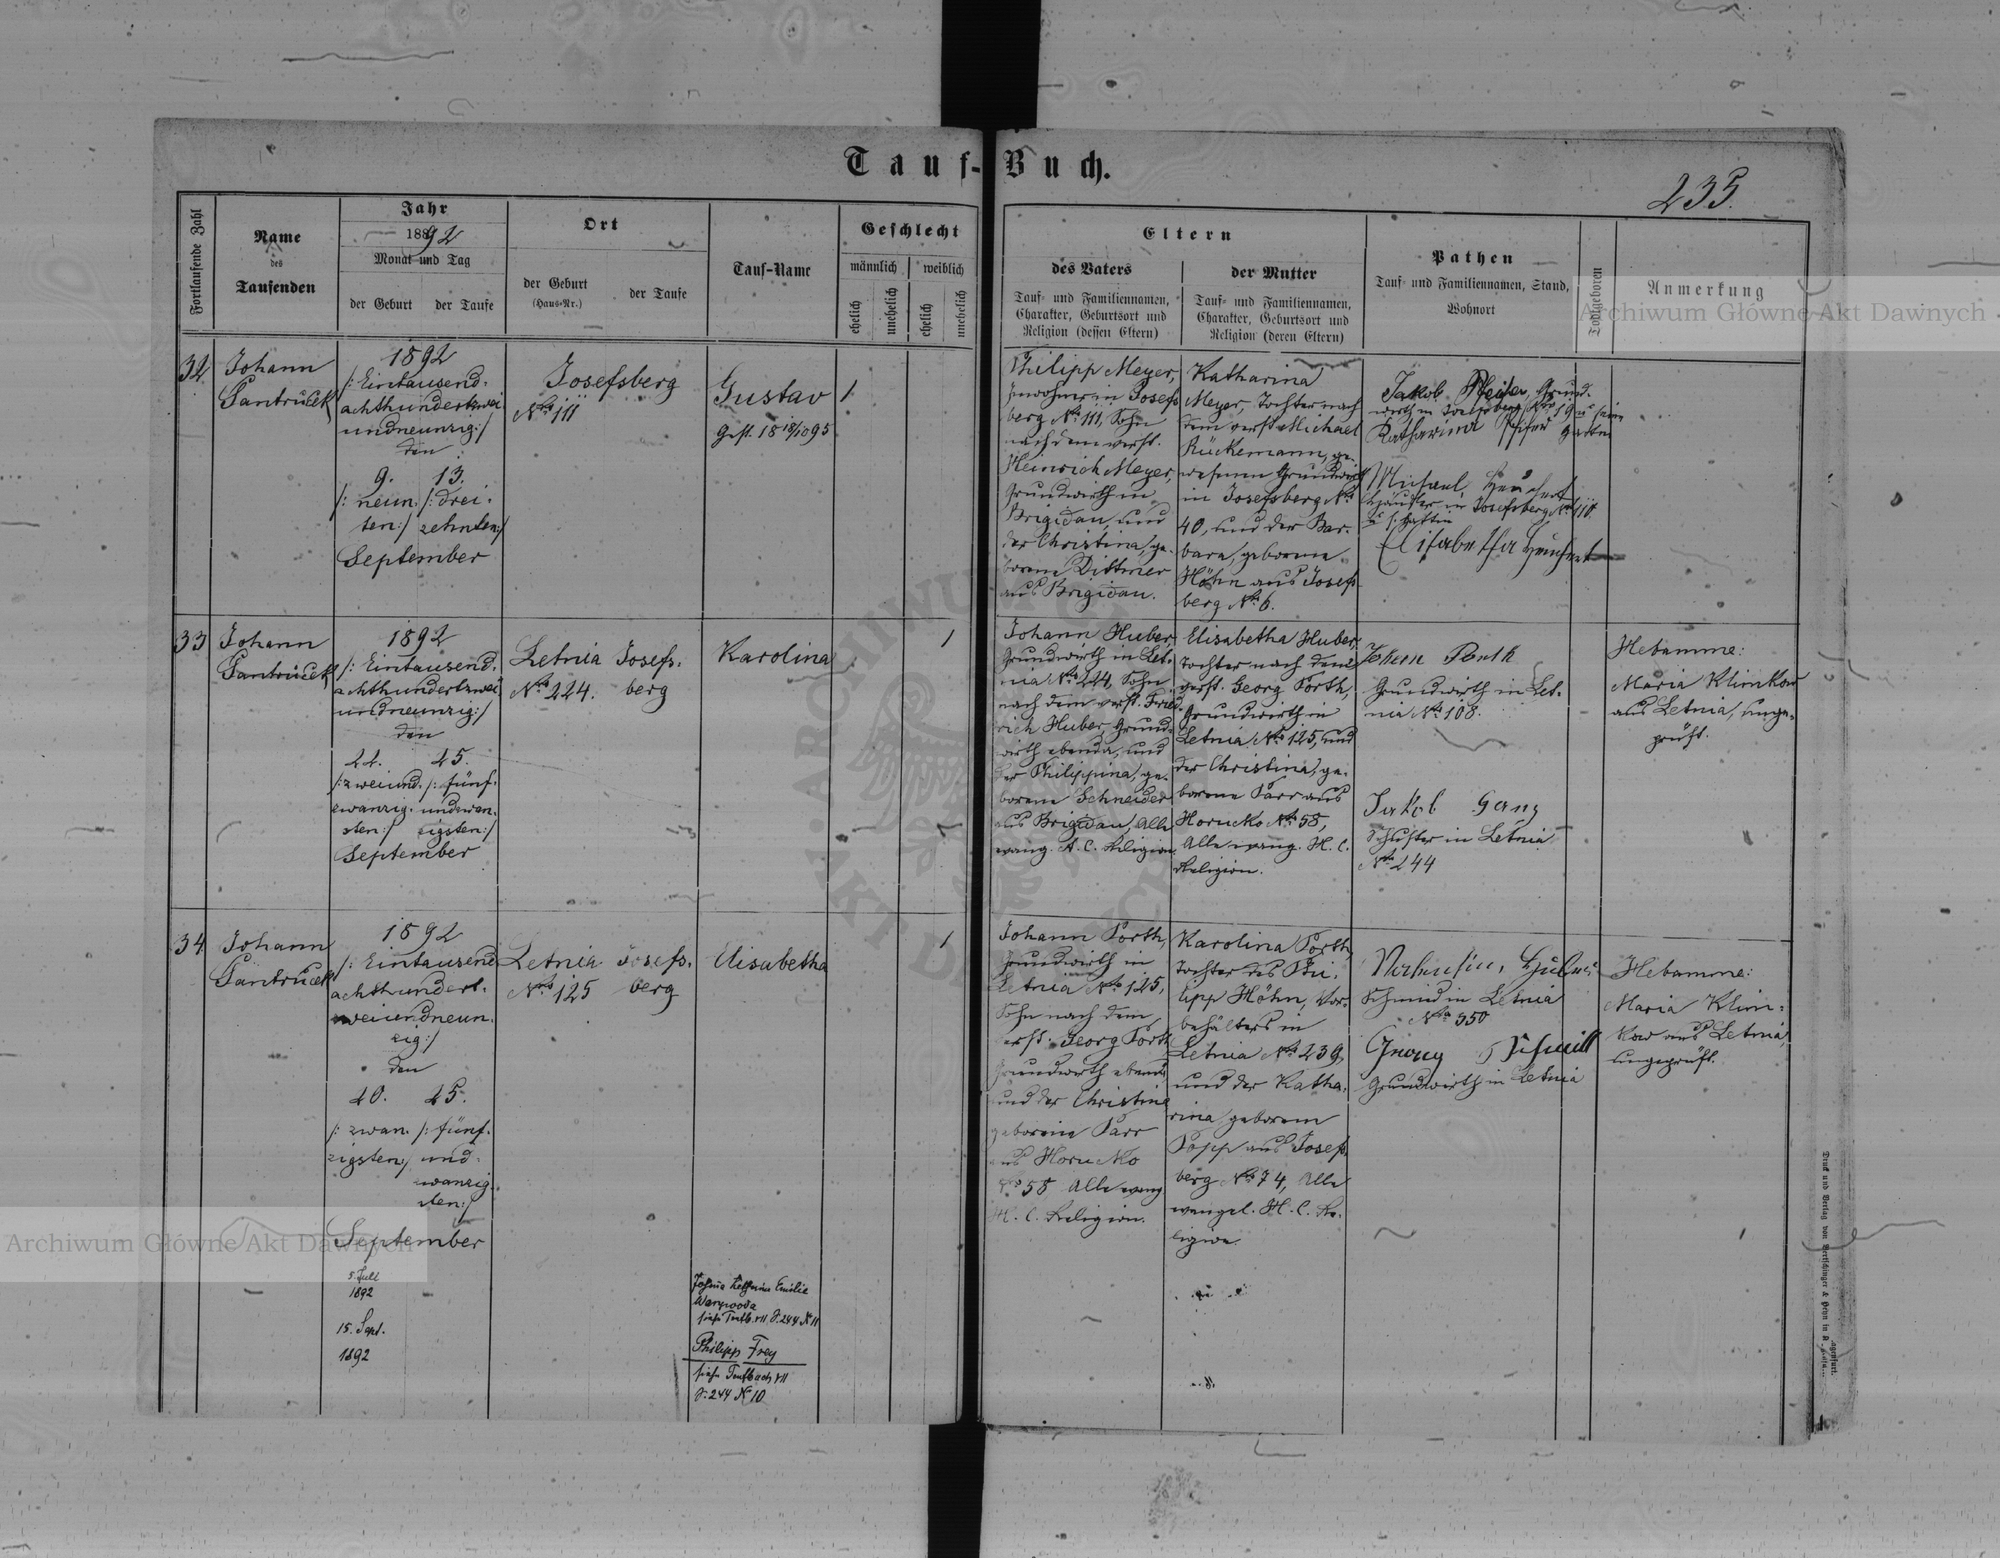 Tauf-Buch.
235.
Fortlaufende Zahl
Name
des
Taufenden
Jahr
1892
Monat und Tag
der Geburt der Taufe
Ort
der Geburt
(Haus-Nr.)
der Taufe
Tauf-Name
Geschlecht
männlich weiblich
ehelich
unehelich
ehelich
unehelich
Eltern
des Vaters
Tauf- und Familiennamen,
Charakter, Geburtsort und
Religion (dessen Eltern)
der Mutter
Tauf- und Familiennamen,
Charakter, Geburtsort und
Religion (deren Eltern)
Pathen
Tauf- und Familiennamen, Stand,
Wohnort
Todtgeboren
Anmerkung
32
Johann
1892
/: Eintausend-
achthundertzwei
undneunzig:/
den
9. 13.
/: neun- /: drei-
ten:/ zehnten:/
September
Josefsberg
No 111
Gustav
Gest. 18 18/10 95
1
Philipp Meyer,
Inwohner in Josefs
berg No 111, Sohn
nach dem verst.
Heinrich Meyer,
Grundwirth in
Brigidau, und
der Christina, ge-
borene Dittmer
aus Brigidau.
Katharina
Meyer, Tochter nach
dem verst. Michael
Rückemann, ge-
wesenen Grundwirth
in Josefsberg No
40, und der Bar-
bara, geborene
Höhn aus Josefs
berg No 6.
Jakob
Katharina
Michael
in Josefsberg No 110.
Elisabetha
33
Johann
1892
/: Eintausend-
achthundertzwei
undneunzig:/
den
22. 25.
/: zweiund- /: fünf-
zwanzig- undzwan-
sten:/ zigsten:/
September
Letnia Josefs-
No 224. berg
Karolina
1
Johann Huber,
Grundwirth in Let-
nia No 224, Sohn
nach dem verst. Fried-
rich Huber, Grund-
wirth ebenda, und
der Philippina, ge-
borene Schneider
aus Brigidau, Alle
evang. H. C. Religion.
Elisabetha Huber,
Tochter nach dem
verst. Georg Porth,
Grundwirth in
Letnia No 125, und
der Christina, ge-
borene Parr aus
Horucko No 58,
Alle evang. H. C.
Religion.
Grundwirth in Let-
nia No 108.
Jakob Ganz
Schuster in Letnia
No 244
Hebamme:
Maria Klimkow
aus Letnia, unge-
prüft.
34
Johann
1892
/: Eintausend
achthundert-
zweiundneun-
zig:/
den
20. 25.
/: zwan- /: fünf-
zigsten:/ und-
zwanzig-
sten:/
September
Letnia Josefs-
No 125 berg
Elisabetha
1
Johann Porth,
Grundwirth in
Letnia No 125,
Sohn nach dem
verst. Georg Porth
Grundwirth ebenda
und der Christina
geborene Parr
aus Horucko
No 58 Alle evang
H. C. Religion.
Karolina Porth,
Tochter des Phi-
lipp Höhn, Vor-
behälters in
Letnia No 239,
und der Katha-
rina geborenen
Popp aus Josefs
berg No 74, Alle
evangel. H. C. Re-
ligion.
Schmid in Letnia
No 350
Georg Schmitt
Grundwirth in Letnia
Hebamme:
Maria Klim-
kow aus Letnia,
ungeprüft.
5. Juli
1892
Emilie
siehe Taufb. VII S. 244 No 11
15. Sept.
1892
Philipp Frey
siehe Taufbuch VII
S. 244 No 10
Druck und Verlag von
Archiwum Główne Akt Dawnych
Archiwum Główne Akt Dawnych